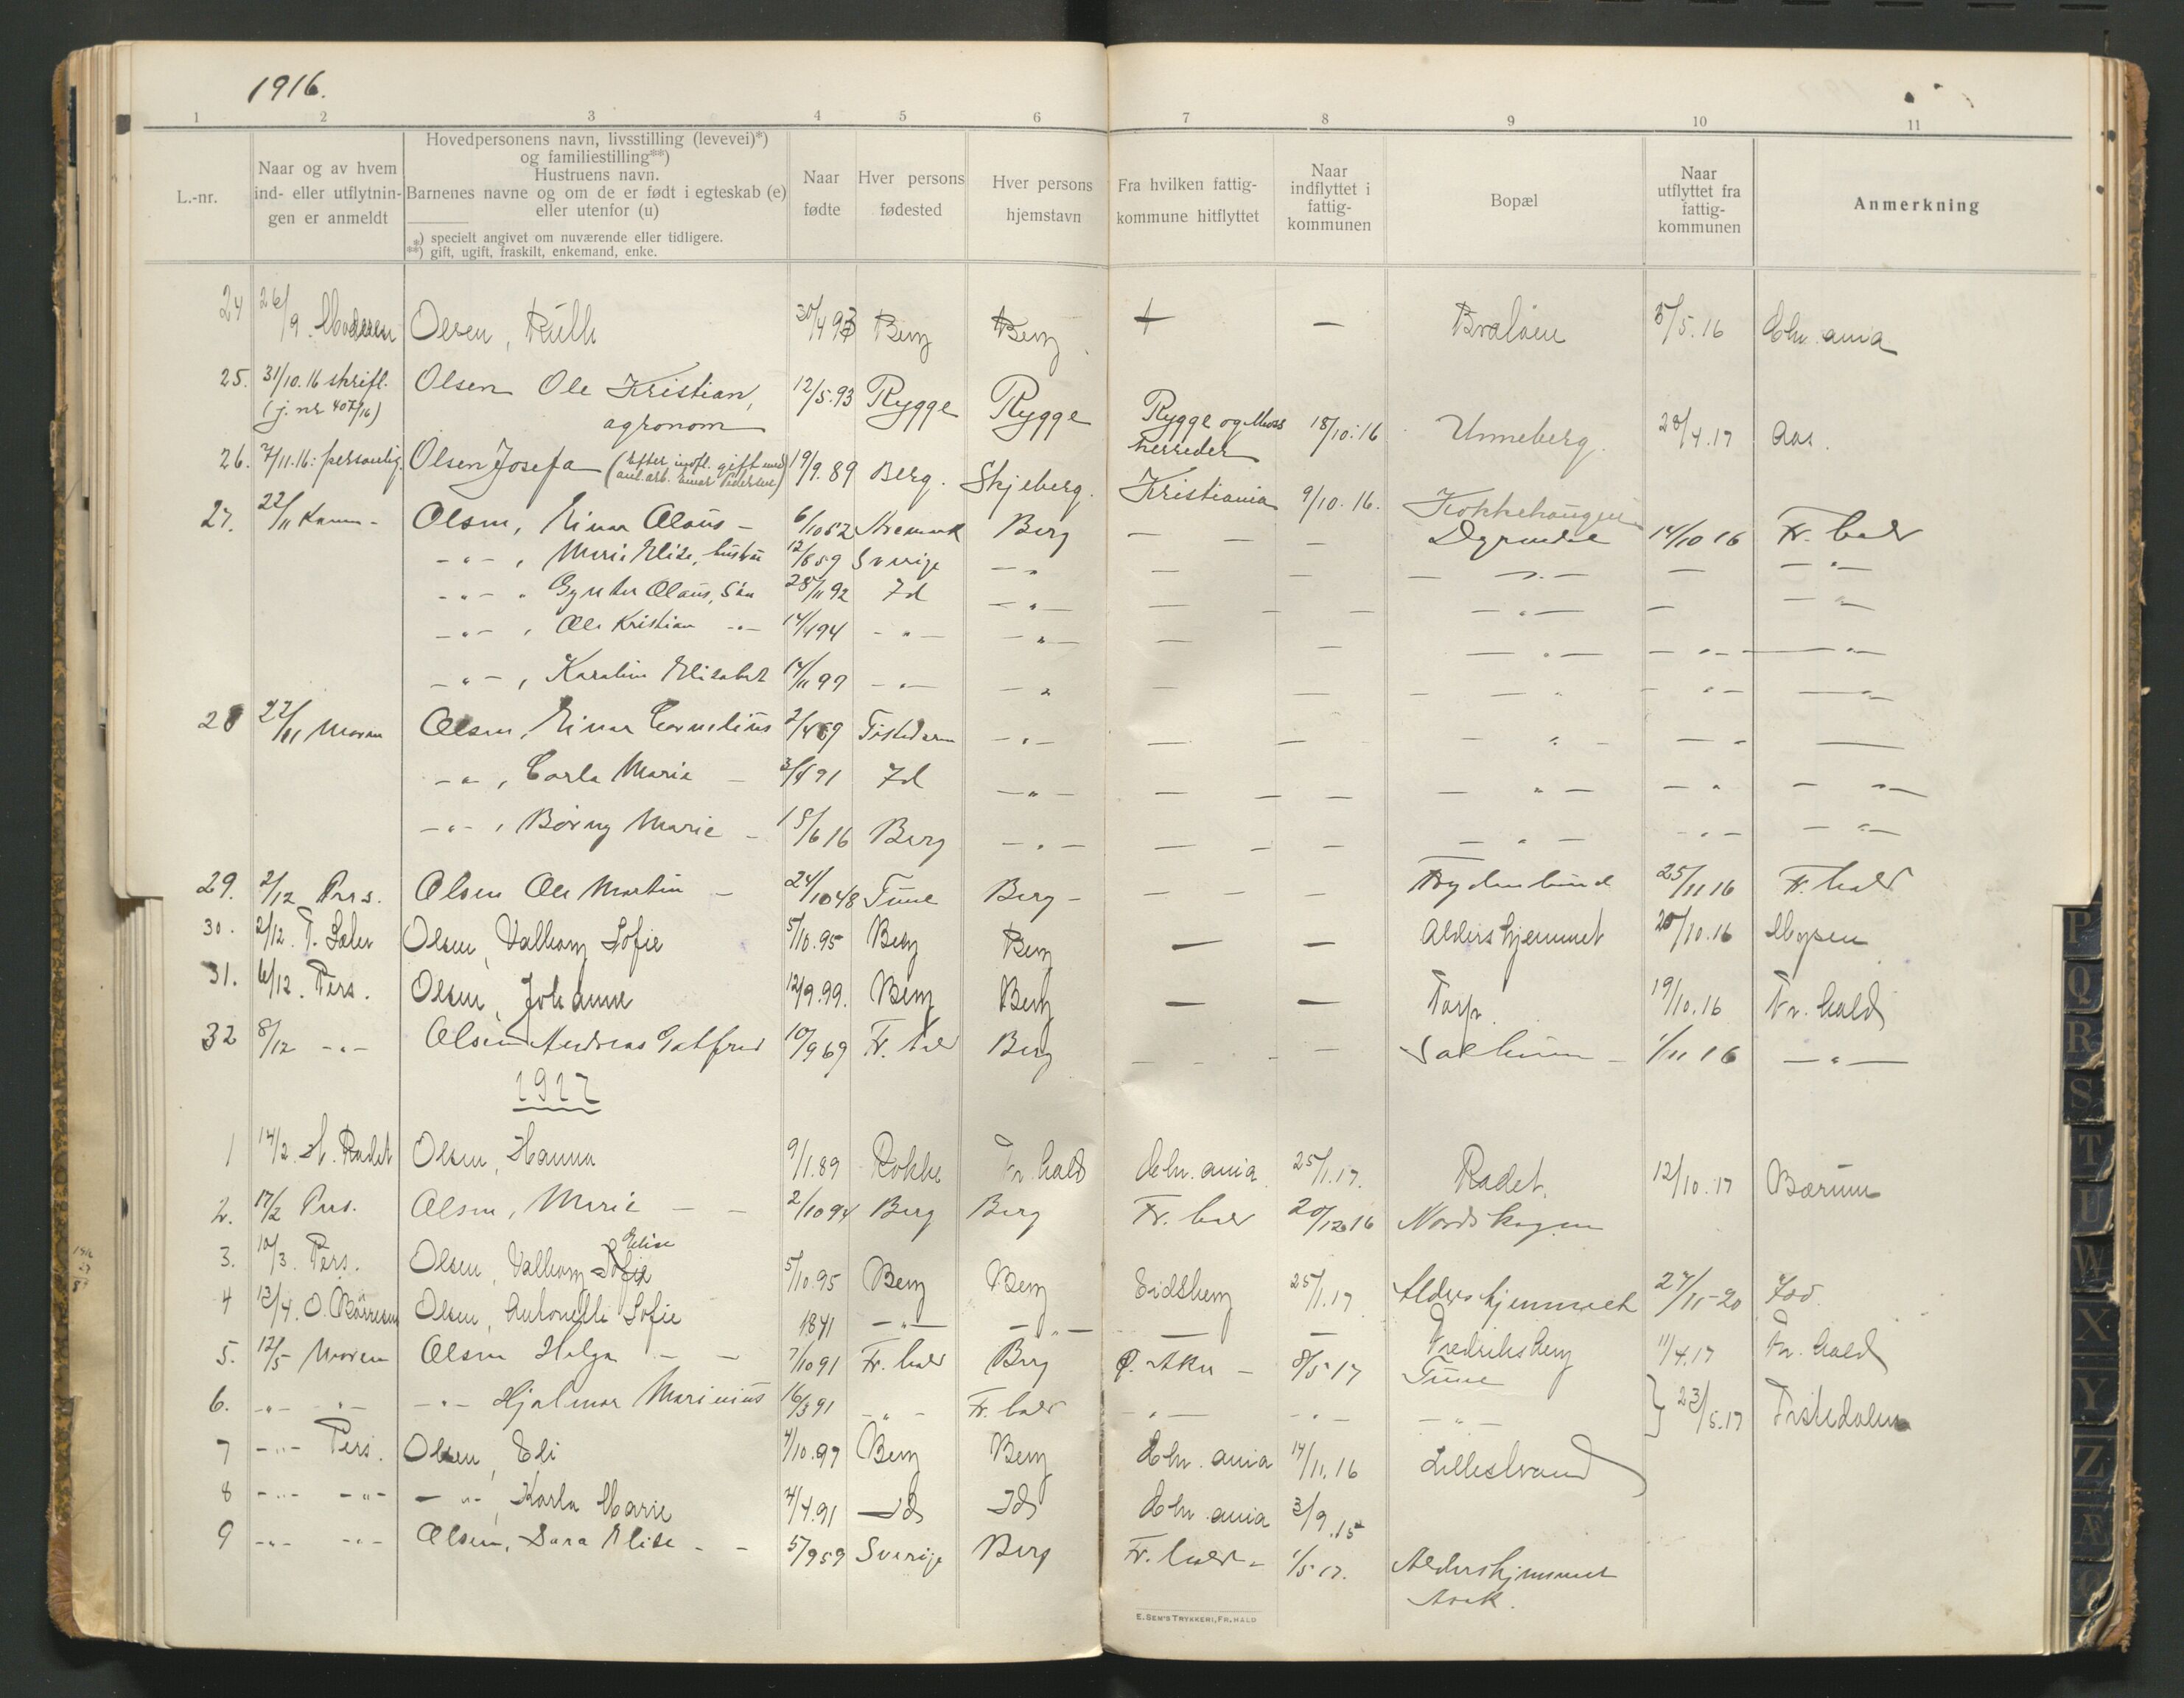 1916.
1 2 3 4 5 6 7 8 9 10 11
L.-nr.
Naar og av hvem
ind- eller utflytnin-
gen er anmeldt
Hovedpersonens navn, livsstilling (levevei)*)
og familiestilling**)
Hustruens navn.
Barnenes navne og om de er født i egteskab (e)
eller utenfor (u)
*) specielt angivet om nuværende eller tidligere.
**) gift, ugift, fraskilt, enkemand, enke.
Naar
fødte
Hver persons
fødested
Hver persons
hjemstavn
Fra hvilken fattig-
kommune hitflyttet
Naar
indflyttet i
fattig-
kommunen
Bopæl
Naar
utflyttet fra
fattig-
kommunen
Anmerkning
24 26/9. Moderen Olsen, Ruth 30/4 93 Berg Berg + — 5/5.16 Chr.ania
25. 31/10.16 skriftl. Olsen Ole Kristian, 12/5.93 Rygge Rygge Rygge og Moss 18/10.16 Unneberg 28/4.17 Aas.
(j. nr 407/16) agronom herreder
26. 7/11.16: personlig. Olsen Josefa (Efter indfl. gift med 19/9.89 Berg. Skjeberg. Kristiania 9/10.16. Kokkehaugen
27. 22/11 Olsen, Einar Olaus – 6/10 62 Aremark Berg — — — 14/10 16 Fr.hald
-"- , Marie Elise, hustru 12/8 59 Sverige -"- — — — -"- — -"-
-"- , Olaus, Søn 28/11 92 Id -"- — — — -"- — -"-
-"- , Ole Kristian -"- 14/4 94 -"- -"- — — -"- -"- -"-
-"- , Elisabet 14/11 97 -"- -"- — — -"- -"- -"-
28 22/11 Moren Olsen, Einar Cornelius 2/4 69 Tistedalen -"- — — -"- — —
-"- , Carla Marie – 3/4 91 Id -"- — — — -"- -"- -"-
-"- , Marie – 15/6 16 Berg -"- — — — -"- -"- -"-
29. 2/12 Pers. Olsen Ole Martin – 24/10 48 Tune Berg – — — — Frydenlund 25/11 16 Fr.hald
30. 2/12. Olsen, Valborg Sofie 5/10.95 Berg Berg — — Aldershjemmet 20/10.16 Mysen
31. 6/12. Pers. Olsen, Johanne 12/9.99. Berg Berg — — Torp. 19/10.16 Fr.hald
32 8/12 -"- Olsen Andreas Gotfred 10/9 69 Fr.hald Berg — — — Solheim – 1/11 16 -"-
1917
1 14/2. H. Rødet Olsen, Hanna 9/1.89 Rokke Fr.hald Chr.ania 25/1.17. Rødet. 12/10.17 Bærum
2. 17/2 Pers. Olsen, Marie – – 2/10 94 Berg Berg Fr.hald 20/12 16 Nordskogen
Elise
3. 10/3. Pers. Olsen, Valborg Sofie 5/10.95 Berg Berg Eidsberg 25/1.17 Aldershjemmet 27/11-20
4 13/4. O. Børresen Olsen, Antonette Sofie 1841 -"- -"- — — Fredriksberg 11/4.17 Fr.hald
5. 12/5 Moren Olsen Helga – – 7/10 91 Fr.hald Berg Ø. Aker – 8/5 17 Tune
6. -"- -"- -"- Hjalmar Marinius 16/3 91 -"- Fr.hald -"- -"- -"- } 23/5.17 Tistedalen
7 -"- Pers. Olsen, Eli 4/10.97 Berg Berg Chr.ania 14/11.16 Lillestrand
8 -"- -"- -"-, Karla Marie 4/4.91 Id Id Chr.ania 3/9.15
9 -"- -"- Olsen, Sara Elise – – 5/9 59 Sverige Berg Fr.hald – 1/5 17. Aldershjemmet
Asak.
E. SEM'S TRYKKERI, FR.HALD
P
Q
R
S
T
U
W
X
Y
Z
Æ